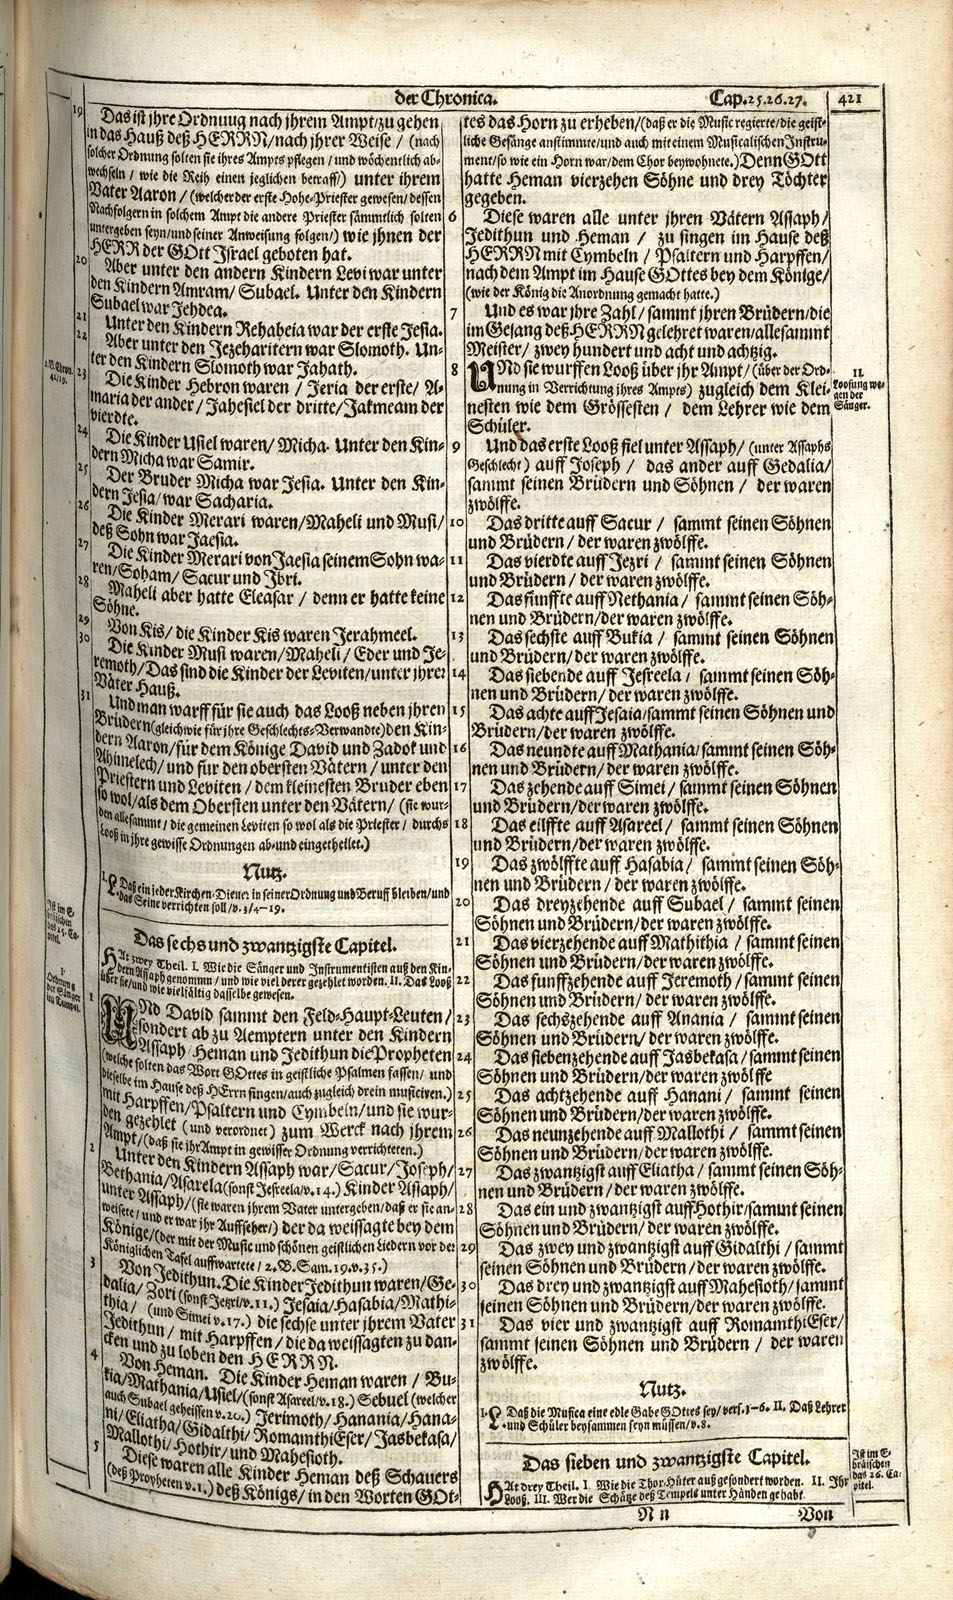 der Chronica. Cap.25.26.27. 421
19 Das ist jhre Ordnung nach jhrem Ampt/zu gehen
in das Hauß deß HERRN/nach jhrer Weise / (nach
solcher Ordnung solten sie ihres Ampts pflegen / und wöchentlich ab-
wechseln / wie die Reih einen jeglichen betraff/) unter ihrem
Vater Aaron / (welcher der erste Hohe-Priester gewesen/dessen
Nachfolgern in solchem Ampt die andere Priester sämmtlich solten
untergeben seyn/und seiner Anweisung folgen/) wie jhnen der
HERR der GOtt Israel geboten hat.
20 Aber unter den andern Kindern Levi war unter
den Kindern Amram/ Subael. Unter den Kindern
Subael war Jehdea.
21 Unter den Kindern Rehabeia war der erste Jesia.
22 Aber unter den Jezeharitern war Slomoth. Un-
ter den Kindern Slomoth war Jahath.
23 Die Kinder Hebron waren / Jeria der erste/ A-
maria der ander/ Jahesiel der dritte/ Jakmeam der
vierdte.
24 Die Kinder Usiel waren/ Micha. Unter den Kin-
dern Micha war Samir.
25 Der Bruder Micha war Jesia. Unter den Kin-
dern Jesia/ war Sacharia.
26 Die Kinder Merari waren/Maheli und Musi/
deß Sohn war Jaesia.
27 Die Kinder Merari von Jaesia seinem Sohn wa-
ren/Soham/ Sacur und Ibri.
28 Maheli aber hatte Eleasar / denn er hatte keine
Söhne.
29 Von Kis/ die Kinder Kis waren Jerahmeel.
30 Die Kinder Musi waren/Maheli/ Eder und Je-
remoth/Das sind die Kinder der Leviten/unter jhrer
Väter Hauß.
31 Und man warff für sie auch das Looß neben jhren
Brüdern (gleichwie für jhre Geschlechts-Verwandte) den Kin-
dern Aaron/für dem Könige David und Zadok und
Ahimelech/und für den obersten Vätern / unter den
Priestern und Leviten / dem kleinesten Bruder eben
so wol/als dem Obersten unter den Vätern/ (sie wur-
den allesammt / die gemeinen Leviten so wol als die Priester / durchs
Looß in jhre gewisse Ordnungen ab-und eingetheilet.)
Nutz.
I. L. Daß ein jeder Kirchen-Diener in seiner Ordnung und Beruff bleiben/und
das Seine verrichten soll/v.3/4-19.
Das sechs und zwantzigste Capitel.
HAt zwey Theil. I. Wie die Sänger und Instrumentisten auß den Kin-
dern Assaph genommen / und wie viel derer gezehlet worden. II. Das Looß
über sie/und wie vielfältig dasselbe gewesen.
1 UNd David sammt den Feld-Haupt-Leuten/
sondert ab zu Aemptern unter den Kindern
Assaph/Heman und Jedithun die Propheten
(welche solten das Wort GOttes in geistliche Psalmen fassen/ und
dieselbe im Hause deß HErrn singen/auch zugleich drein musiciren.)
mit Harpffen/Psaltern und Cymbeln/und sie wur-
den gezehlet (und verordnet) zum Werck nach jhrem
Ampt/(daß sie jhr Ampt in gewisser Ordnung verrichteten.)
2 Unter den Kindern Assaph war/Sacur/Joseph/
Bethania/Asarela(sonst Jesreela/v.14.) Kinder Assaph/
unter Assaph/(sie waren jhrem Vater untergeben/daß er sie an-
weisete/und er war jhr Auffseher/) der da weissagte bey dem
Könige/(der mit der Music und schönen geistlichen Liedern vor der
Königlichen Tafel auffwartete/ 2.B.Sam.19.v.35.)
3 Von Jedithun. Die Kinder Jedithun waren/Ge-
dalia/ Zori (sonst Jezri/v.11.) Jesaia/Hasabia/Mathi-
thia/ (und Simei v.17.) die sechse unter jhrem Vater
Jedithun/ mit Harpffen/ die da weissagten zu dan-
cken und zu loben den HERRN.
4 Von Heman. Die Kinder Heman waren / Bu-
kia/Mathania/Usiel/(sonst Asareel/v.18.) Sebuel (welcher
auch Subael geheissen v.20.) Jerimoth/Hanania/Hana-
ni/Eliatha/Gidalthi/ RomamthiEser/ Jasbekasa/
Mallothi/Hothir/und Mahesioth.
5 Diese waren alle Kinder Heman deß Schauers
(deß Propheten v.1.) deß Königs/ in den Worten GOt-
tes das Horn zu erheben/(daß er die Music regierte/die geist-
liche Gesänge anstimmte/und auch mit einem Musicalischen Instru-
ment/so wie ein Horn war/dem Chor beywohnete.) Denn GOtt
hatte Heman vierzehen Söhne und drey Töchter
gegeben.
6 Diese waren alle unter jhren Vätern Assaph/
Jedithun und Heman / zu singen im Hause deß
HERRN mit Cymbeln / Psaltern und Harpffen/
nach dem Ampt im Hause GOttes bey dem Könige/
(wie der König die Anordnung gemacht hatte.)
7 Und es war jhre Zahl/ sammt jhren Brüdern/die
im Gesang deß HERRN gelehret waren/allesammt
Meister/ zwey hundert und acht und achtzig.
8 UNd sie wurffen Looß über jhr Ampt/ (über der Ord-
nung in Verrichtung jhres Ampts) zugleich dem Klei-
nesten wie dem Grössesten / dem Lehrer wie dem
Schüler.
9 Und das erste Looß fiel unter Assaph/ (unter Assaphs
Geschlecht) auff Joseph / das ander auff Gedalia/
sammt seinen Brüdern und Söhnen / der waren
zwölffe.
10 Das dritte auff Sacur / sammt seinen Söhnen
und Brüdern/ der waren zwölffe.
11 Das vierdte auff Jezri / sammt seinen Söhnen
und Brüdern/ der waren zwölffe.
12 Das fünffte auff Nethania / sammt seinen Söh-
nen und Brüdern/der waren zwölffe.
13 Das sechste auff Bukia / sammt seinen Söhnen
und Brüdern/der waren zwölffe.
14 Das siebende auff Jesreela / sammt seinen Söh-
nen und Brüdern/ der waren zwölffe.
15 Das achte auff Jesaia/sammt seinen Söhnen und
Brüdern/der waren zwölffe.
16 Das neundte auff Mathania/sammt seinen Söh-
nen und Brüdern/ der waren zwölffe.
17 Das zehende auff Simei/ sammt seinen Söhnen
und Brüdern/der waren zwölffe.
18 Das eilffte auff Asareel/ sammt seinen Söhnen
und Brüdern/der waren zwölffe.
19 Das zwölffte auff Hasabia/ sammt seinen Söh-
nen und Brüdern / der waren zwölffe.
20 Das dreyzehende auff Subael / sammt seinen
Söhnen und Brüdern/der waren zwölffe.
21 Das vierzehende auff Mathithia / sammt seinen
Söhnen und Brüdern/der waren zwölffe.
22 Das funffzehende auff Jeremoth/ sammt seinen
Söhnen und Brüdern/ der waren zwölffe.
23 Das sechszehende auff Anania/ sammt seinen
Söhnen und Brüdern/ der waren zwölffe.
24 Das siebenzehende auff Jasbekasa/sammt seinen
Söhnen und Brüdern/der waren zwölffe
25 Das achtzehende auff Hanani/ sammt seinen
Söhnen und Brüdern/der waren zwölffe.
26 Das neunzehende auff Mallothi / sammt seinen
Söhnen und Brüdern/ der waren zwölffe.
27 Das zwantzigst auff Eliatha/ sammt seinen Söh-
nen und Brüdern/ der waren zwölffe.
28 Das ein und zwantzigst auff Hothir/sammt seinen
Söhnen und Brüdern/ der waren zwölffe.
29 Das zwey und zwantzigst auff Gidalthi/ sammt
seinen Söhnen und Brüdern/ der waren zwölffe.
30 Das drey und zwantzigst auff Mahesioth/ sammt
seinen Söhnen und Brüdern/der waren zwölffe.
31 Das vier und zwantzigst auff RomamthiEser/
sammt seinen Söhnen und Brüdern / der waren
zwölffe.
Nutz.
I. L. Daß die Musica eine edle Gabe GOttes sey/ vers.1-6. II. Daß Lehrer
und Schüler beysammen seyn müssen/v.8.
Das sieben und zwantzigste Capitel.
HAt drey Theil. I. Wie die Thor-Hüter außgesondert worden. II. Ihr
Looß. III. Wer die Schätze deß Tempels unter Händen gehabt.
N n Von
Ist im E-
bräischen
das 25. Ca-
pitel.
I.
Ordnung
der Sänger
im Tempel.
II.
Loosung we-
gen der
Sänger.
Ist im E-
bräischen
das 26. Ca-
pitel.